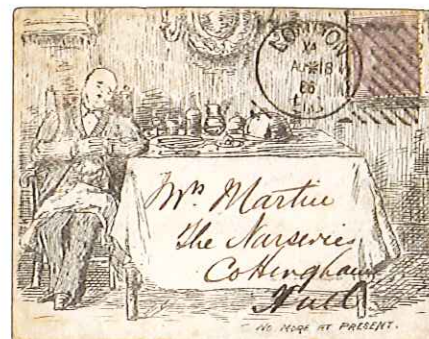 LONDON
AU 18
86
Mrs Martin
The Nurseries
Cottingham
Hull
NO MORE AT PRESENT.